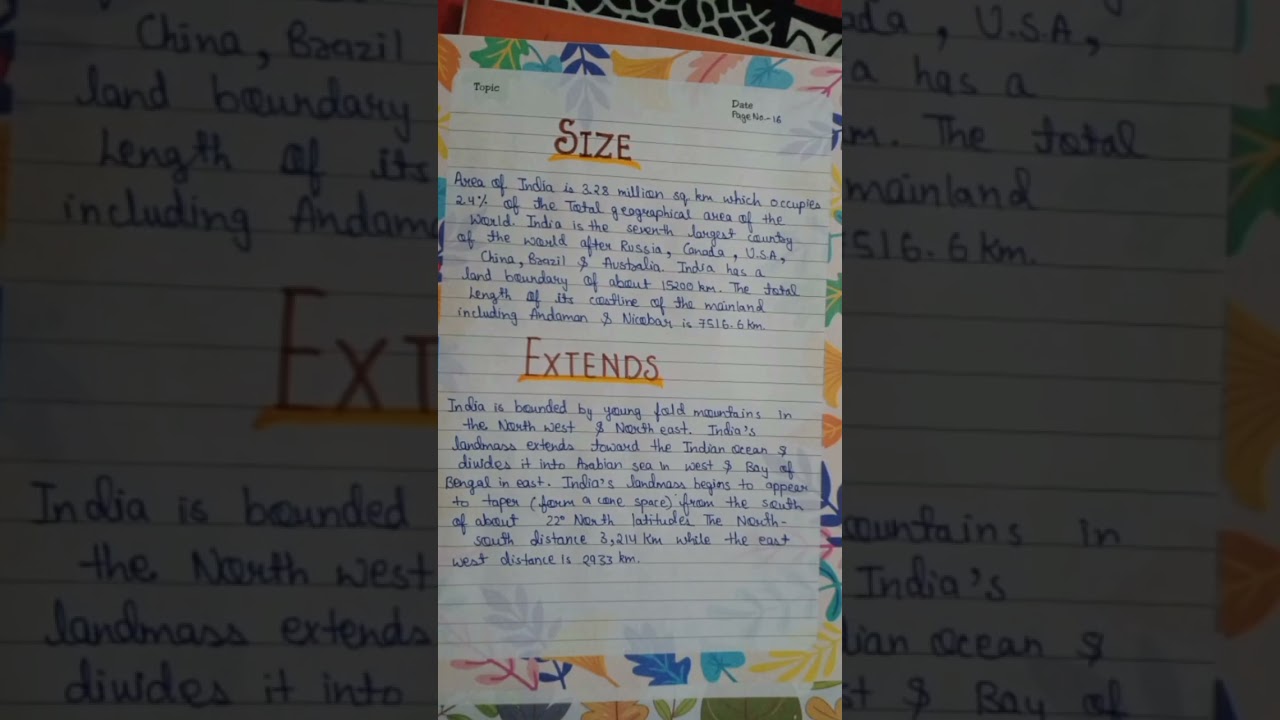 Topic
Date
Page No.-16
SIZE
Area of India is 3.28 million sq km which occupies
2.4% of the Total geographical area of the
World. India is the seventh largest country
of the world after Russia, Canada, U.S.A,
China, Brazil & Australia. India has a
land boundary of about 15200 km. The total
Length of its costline of the mainland
including Andaman & Nicobar is 7516.6 km.
EXTENDS
India is bounded by young fold mountains in
the North west & North east. India's
landmass extends toward the Indian ocean &
divides it into Arabian sea in west & Bay of
Bengal in east. India's landmass begins to appear
to taper (form a cone space) from the south
of about 22° North latitudes The North-
south distance 3,214 Km while the east
west distance is 2933 km.